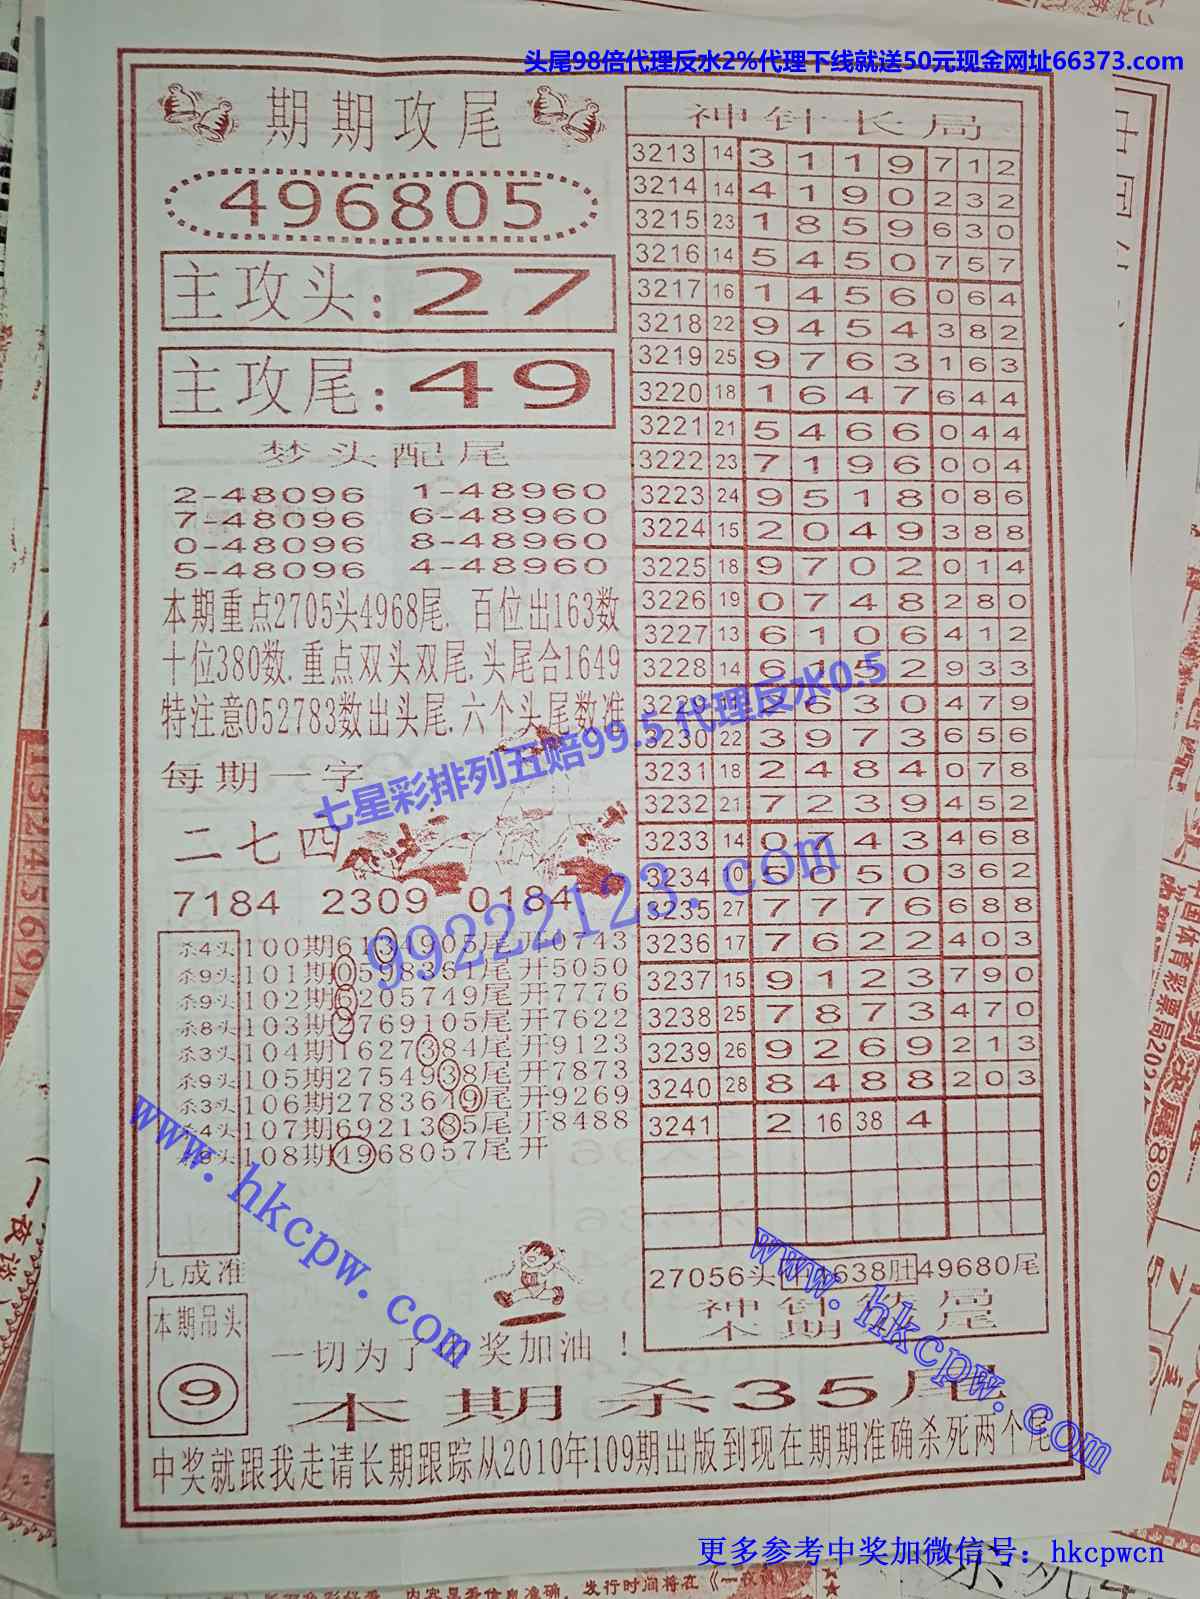 头尾98倍代理反水2%代理下线就送50元现金网址66373.com
期期攻尾
496805
主攻头:27
主攻尾:49
梦头配尾
2-48096 1-48960
7-48096 6-48960
0-48096 8-48960
5-48096 4-48960
本期重点2705头4968尾. 百位出163数
十位380数.重点双头双尾.头尾合1649
特注意052783数出头尾.六个头尾数准
每期一字
二七四
7184 2309 0184
杀4头 100期6134905尾开0743
杀9头 101期0598361尾开5050
杀9头 102期6205749尾开7776
杀8头 103期2769105尾开7622
杀3头 104期1627384尾开9123
杀9头 105期2754938尾开7873
杀3头 106期2783649尾开9269
杀4头 107期6921385尾开8488
108期4968057尾开
九成准
本期吊头
9
一切为了 奖加油!
神针长局
3213 14 3 1 1 9 7 1 2
3214 14 4 1 9 0 2 3 2
3215 23 1 8 5 9 6 3 0
3216 14 5 4 5 0 7 5 7
3217 16 1 4 5 6 0 6 4
3218 22 9 4 5 4 3 8 2
3219 25 9 7 6 3 1 6 3
3220 18 1 6 4 7 6 4 4
3221 21 5 4 6 6 0 4 4
3222 23 7 1 9 6 0 0 4
3223 24 9 5 1 8 0 8 6
3224 15 2 0 4 9 3 8 8
3225 18 9 7 0 2 0 1 4
3226 19 0 7 4 8 2 8 0
3227 13 6 1 0 6 4 1 2
3228 14 6 1 5 2 9 3 3
3229 11 2 6 3 0 4 7 9
3230 22 3 9 7 3 6 5 6
3231 18 2 4 8 4 0 7 8
3232 21 7 2 3 9 4 5 2
3233 14 0 7 4 3 4 6 8
3234 10 5 0 5 0 3 6 2
3235 27 7 7 7 6 6 8 8
3236 17 7 6 2 2 4 0 3
3237 15 9 1 2 3 7 9 0
3238 25 7 8 7 3 4 7 0
3239 26 9 2 6 9 2 1 3
3240 28 8 4 8 8 2 0 3
3241 2 16 38 4
27056头 638肚 49680尾
神针
本期 尾
本期杀35尾
中奖就跟我走请长期跟踪从2010年109期出版到现在期期准确杀死两个尾
七星彩排列五赔99.5 代理反水0.5
99222123.com
www.hkcpw.com
www.hkcpw.com
更多参考中奖加微信号：hkcpwcn